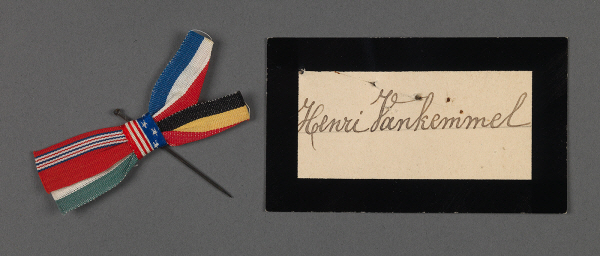 Henri Vankemmel